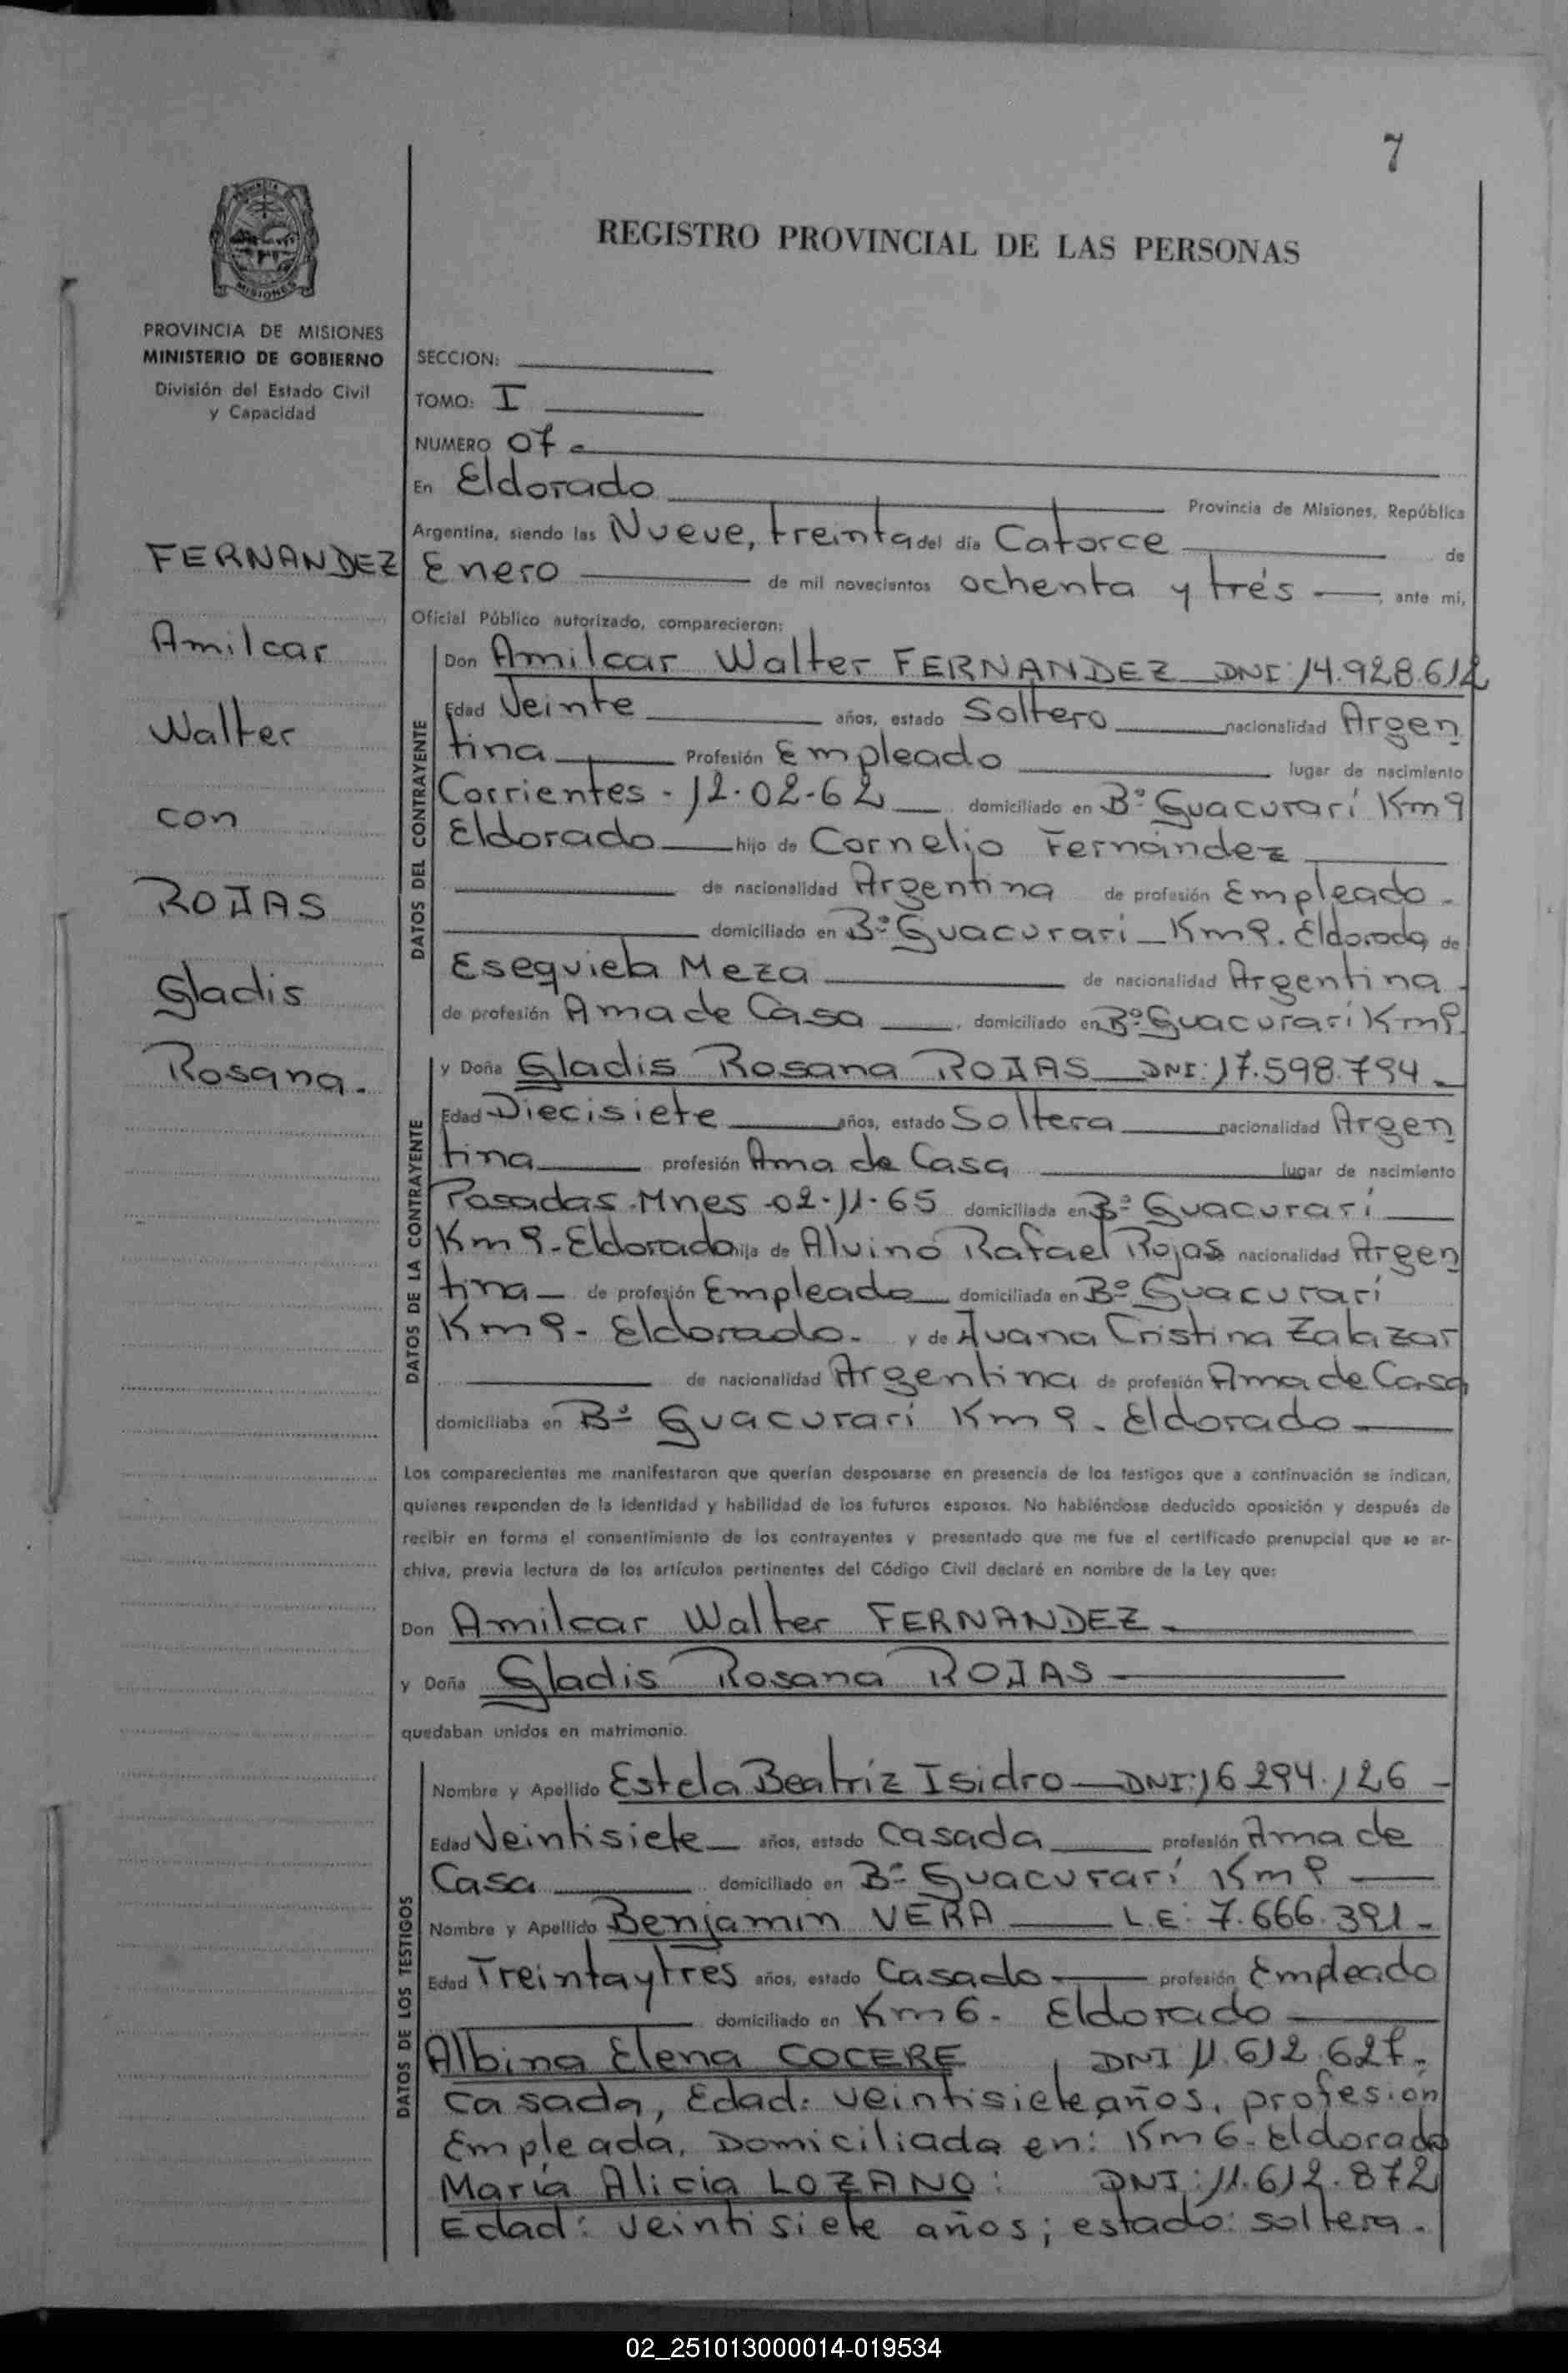 7
PROVINCIA DE MISIONES
MINISTERIO DE GOBIERNO
División del Estado Civil
y Capacidad
FERNANDEZ
Amilcar
Walter
con
ROJAS
Gladis
Rosana.
REGISTRO PROVINCIAL DE LAS PERSONAS
SECCION:
TOMO: I
NUMERO 07-
En Eldorado Provincia de Misiones, República
Argentina, siendo las Nueve, treinta del día Catorce de
Enero de mil novecientos ochenta y trés ante mi,
Oficial Público autorizado, comparecieron:
DATOS DEL CONTRAYENTE
Don Amilcar Walter FERNANDEZ DNI: 14.928.612
Edad Veinte años, estado Soltero nacionalidad Argen
tina Profesión Empleado lugar de nacimiento
Corrientes - 12-02-62 domiciliado en Bº Guacurarí Km 9
Eldorado hijo de Cornelio Fernández
de nacionalidad Argentina de profesión Empleado -
domiciliado en Bº Guacurarí - Km 9. Eldorado, de
Esequiela Meza de nacionalidad Argentina -
de profesión Ama de Casa, domiciliado en Bº Guacurarí Km 9.
DATOS DE LA CONTRAYENTE
y Doña Gladis Rosana ROJAS DNI: 17.598.794 -
Edad Diecisiete años, estado Soltera nacionalidad Argen
tina profesión Ama de Casa lugar de nacimiento
Posadas - Mnes - 02-11-65 domiciliada en Bº Guacurarí
Km 9 - Eldorado hija de Alvino Rafael Rojas nacionalidad Argen
tina - de profesión Empleado domiciliada en Bº Guacurarí
Km 9 - Eldorado - y de Juana Cristina Zalazar
de nacionalidad Argentina de profesión Ama de Casa
domiciliaba en Bº Guacurarí Km 9 - Eldorado
Los comparecientes me manifestaron que querían desposarse en presencia de los testigos que a continuación se indican,
quienes responden de la identidad y habilidad de los futuros esposos. No habiéndose deducido oposición y después de
recibir en forma el consentimiento de los contrayentes y presentado que me fue el certificado prenupcial que se ar-
chiva, previa lectura de los artículos pertinentes del Código Civil declaré en nombre de la Ley que:
Don Amilcar Walter FERNANDEZ -
y Doña Gladis Rosana ROJAS
quedaban unidos en matrimonio.
DATOS DE LOS TESTIGOS
Nombre y Apellido Estela Beatríz Isidro - DNI: 16 294.126 -
Edad Veintisiete años, estado Casada profesión Ama de
Casa domiciliado en Bº Guacurarí Km 9
Nombre y Apellido Benjamin VERA L.E: 7.666.391 -
Edad Treinta y tres años, estado Casado profesión Empleado
domiciliado en Km 6 - Eldorado
Albina Elena COCERE DNI 11.612.627.-
Casada, Edad: veintisiete años, profesión
Empleada, Domiciliada en: Km 6 - Eldorado
María Alicia LOZANO: DNI: 11.612.872
Edad: veintisiete años; estado: soltera.
02_251013000014-019534